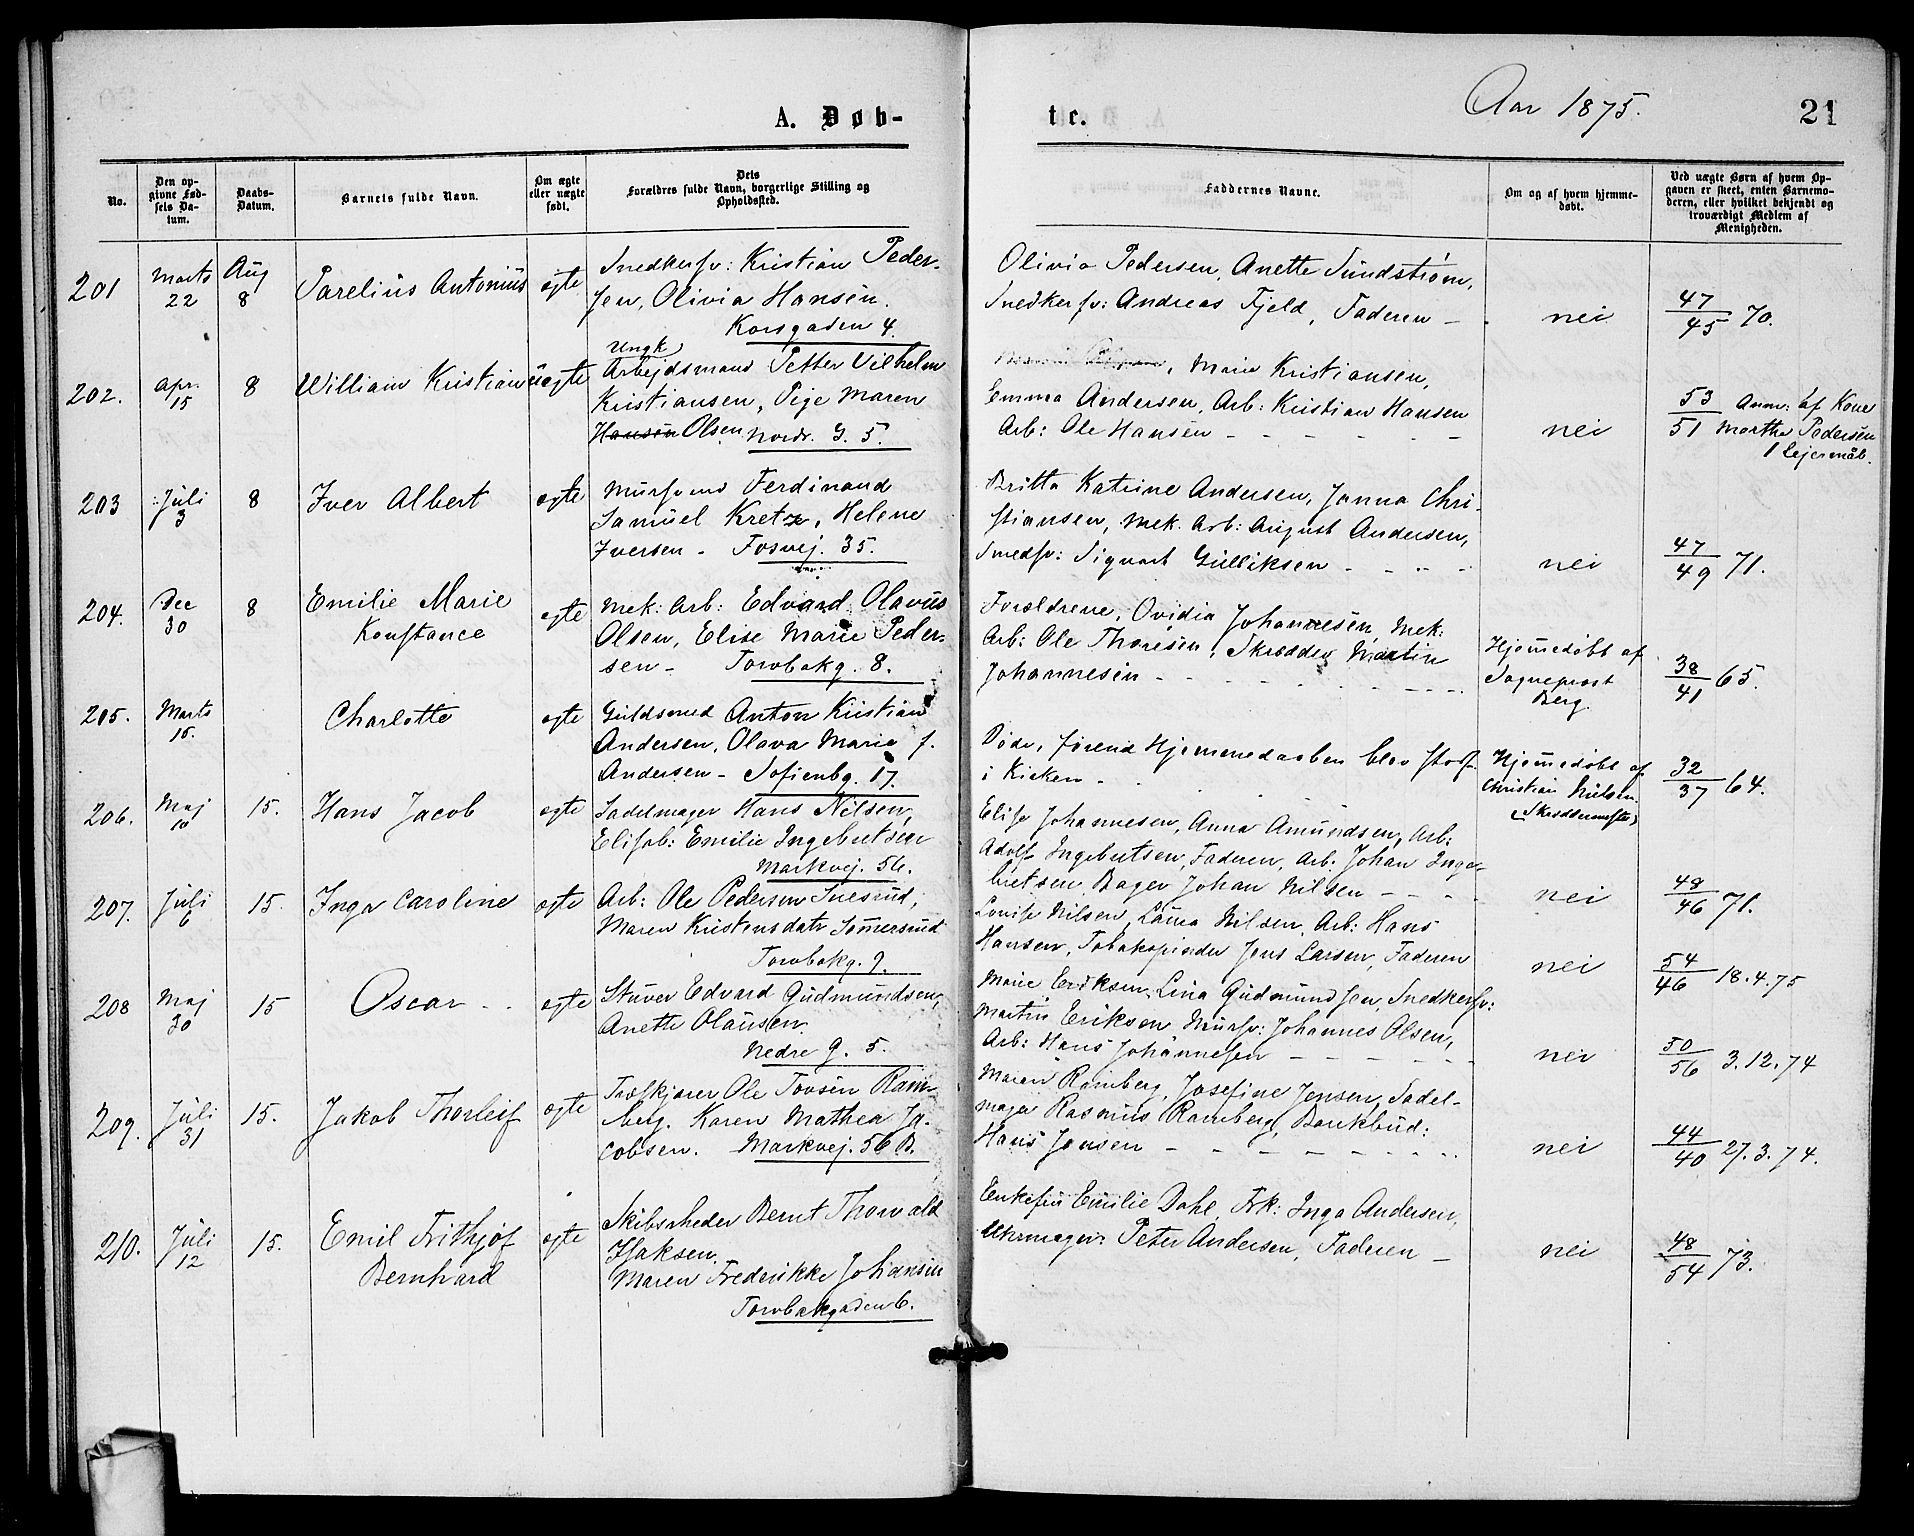 A. Døb-
No.
Den op-
givne Fød-
sels Da-
tum.
Daabs-
Datum.
Barnets fulde Navn.
Om ægte
eller uægte
født.
Dets
Forældres fulde Navn, borgerlige Stilling og
Opholdssted.
201
Marts
22
Aug
8
Parelius Antonius
ægte
Snedkersv: Kristian Peder-
sen, Olivia Hansen.
Korsgaden 4.
202.
Apr.
15
8
William Kristian
uægte
Ungk
Arbejdsmand Petter Vilhelm
Kristiansen, Pige Maren
Hansen Olsen Nordr. G. 5.
203
Juli
3
8
Iver Albert
ægte
Mursvend Ferdinand
Samuel Kretz, Helene
Iversen - Fosvej. 35.
204.
Dec
30
8
Emilie Marie
Konstance
ægte
Mek: Arb: Edvard Olavus
Olsen, Elise Marie Peder-
sen - Torvbakg. 8.
205.
Marts
15.
Charlotte
ægte
Guldsmed Anton Kristian
Andersen, Olava Marie f.
Andersen - Sofienbg. 17.
206.
Maj
10
15.
Hans Jacob
ægte
Sadelmager Hans Nilsen,
Elisab: Emilie Ingebretsen
Markvej. 56.
207.
Juli
6
15.
Inga Caroline
ægte
Arb: Ole Pedersen Snesrud,
Maren Kristensdatr Sømersrud
Torvbakg. 9.
208
Maj
30
15
Oscar
ægte
Stuver Edvard Gudmundsen,
Anette Olausen.
Nedre g. 5.
209.
Juli
31
15.
Jakob Thorleif
ægte
Ole Tovsen Ram-
berg. Karen Mathea Ja-
cobsen. Markvej. 56 B.
210.
Juli
12
15.
Emil Frithjof
Bernhard
ægte
Skibsrheder Bernt Thorvald
Isaksen.
Maren Frederikke Johansen
Torvbakgaden 6.
te.
Aar 1875.
21
Faddernes Navne.
Om og af hvem hjemme-
døbt.
Ved uægte Børn af hvem Op-
gaven er skeet, enten Barnemo-
deren, eller hvilket bekjendt og
troværdigt Medlem af
Menigheden.
Olivia Pedersen, Anette Sundstrøm,
Snedkersv: Andreas Fjeld, Faderen -
nei
47
45 70.
Marie Kristiansen,
Emma Andersen, Arb: Kristian Hansen
Arb: Ole Hansen - - - - -
nei
53
51
Anm: af Kone
Martha Pedersen
1 Lejermål.
Britta Katrine Andersen, Janna Chri-
stiansen, Mek. Arb: August Andersen,
Smedsv: Sigvart Gulliksen - - - -
nei
47
49 71.
Forældrene, Ovidia Johannesen, Mek:
Arb: Ole Thoresen, Skrædder Martin
Johannesen - - - - -
Hjemedøbt af
Sognepræst
Berg.
38
41 65.
Døde, førend Hjemmedaaben blev stadf.
i Kirken -
Hjemedøbt af
Christian Nielsen.
(Skræddermester)
32
37 64.
Elise Johannesen, Anna Amundsen, Arb:
Adolf Ingebretsen, Faderen, Arb. Johan Inge-
bretsen, Bager Johan Nilsen - - -
nei
48
46 71.
Louise Nilsen, Laura Nilsen, Arb: Hans
Hansen, Tobakspinder Jens Larsen, Faderen
nei
54
46 18.4.75
Marie Eriksen, Lina Gudmundsen, Snedkersv:
Martin Eriksen, Mursv: Johannes Olsen,
Arb: Hans Johannesen - - - - -
nei
50
56 3.12.74
Maren Ramberg, Josefine Jensen, Sadel-
mager Rasmus Ramberg, Bankbud:
Hans Jensen - - - - - - -
nei
44
40 27.3.74.
Enkefru Emilie Dahl, Frk: Inga Andersen,
Uhrmager Peter Andersen, Faderen -
nei
48
54 73.